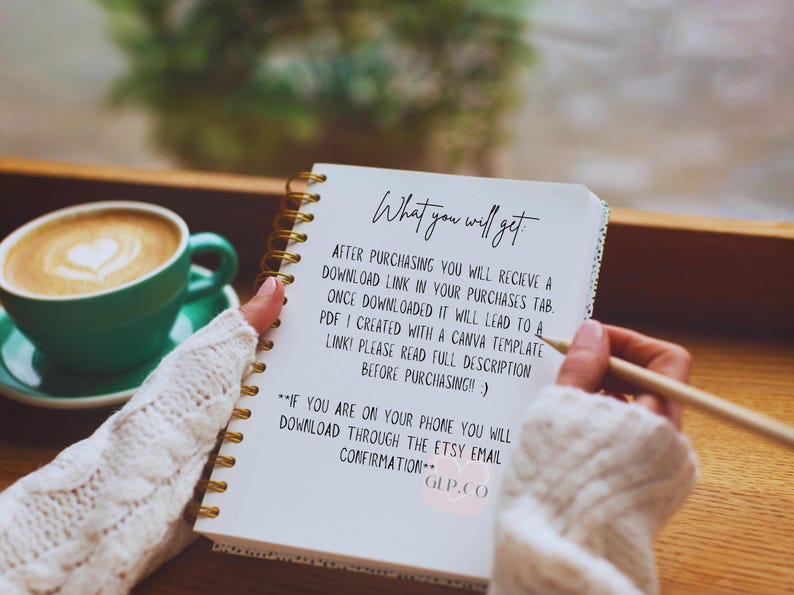 What you will get:
AFTER PURCHASING YOU WILL RECIEVE A
DOWNLOAD LINK IN YOUR PURCHASES TAB.
ONCE DOWNLOADED IT WILL LEAD TO A
PDF I CREATED WITH A CANVA TEMPLATE
LINK! PLEASE READ FULL DESCRIPTION
BEFORE PURCHASING!! :)
**IF YOU ARE ON YOUR PHONE YOU WILL
DOWNLOAD THROUGH THE ETSY EMAIL
CONFIRMATION**
GLP.CO